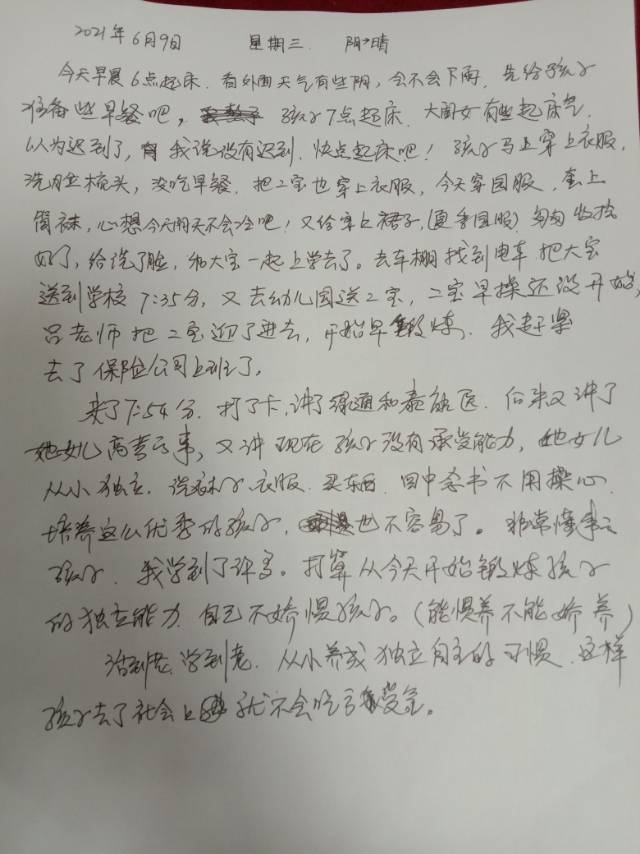 2021年6月9日 星期三. 阴→晴
今天早晨6点起床. 看外面天气有些阴, 会不会下雨, 先给孩子
准备些早餐吧, 孩子7点起床. 大闺女有些起床气,
以为迟到了, 我说没有迟到. 快点起床吧! 孩子马上穿上衣服,
洗脸梳头, 没吃早餐. 把二宝也穿上衣服, 今天穿园服, 套上
筒袜, 心想今天阴天不会冷吧! 又给穿上裙子, (夏季园服) 匆匆收拾
好了, 给洗了脸, 和大宝一起上学去了。去车棚找到电车 把大宝
送到学校 7:35分, 又去幼儿园送二宝, 二宝早操还没开始,
吕老师把二宝迎了进去, 开始早锻炼. 我赶紧
去了保险公司上班了,
来了7:54分. 打了卡, 讲了 后来又讲了
她女儿高考的事, 又讲现在孩子没有承受能力, 她女儿
从小独立. 洗袜子、衣服. 买东西. 高中念书不用操心.
培养这么优秀的孩子, 也不容易了。非常懂事的
孩子. 我学到了许多。打算从今天开始锻炼孩子
的独立能力. 自己不娇惯孩子。(能惯养不能娇养)
活到老, 学到老. 从小养成独立自主的习惯. 这样
孩子去了社会上 就不会吃亏受。